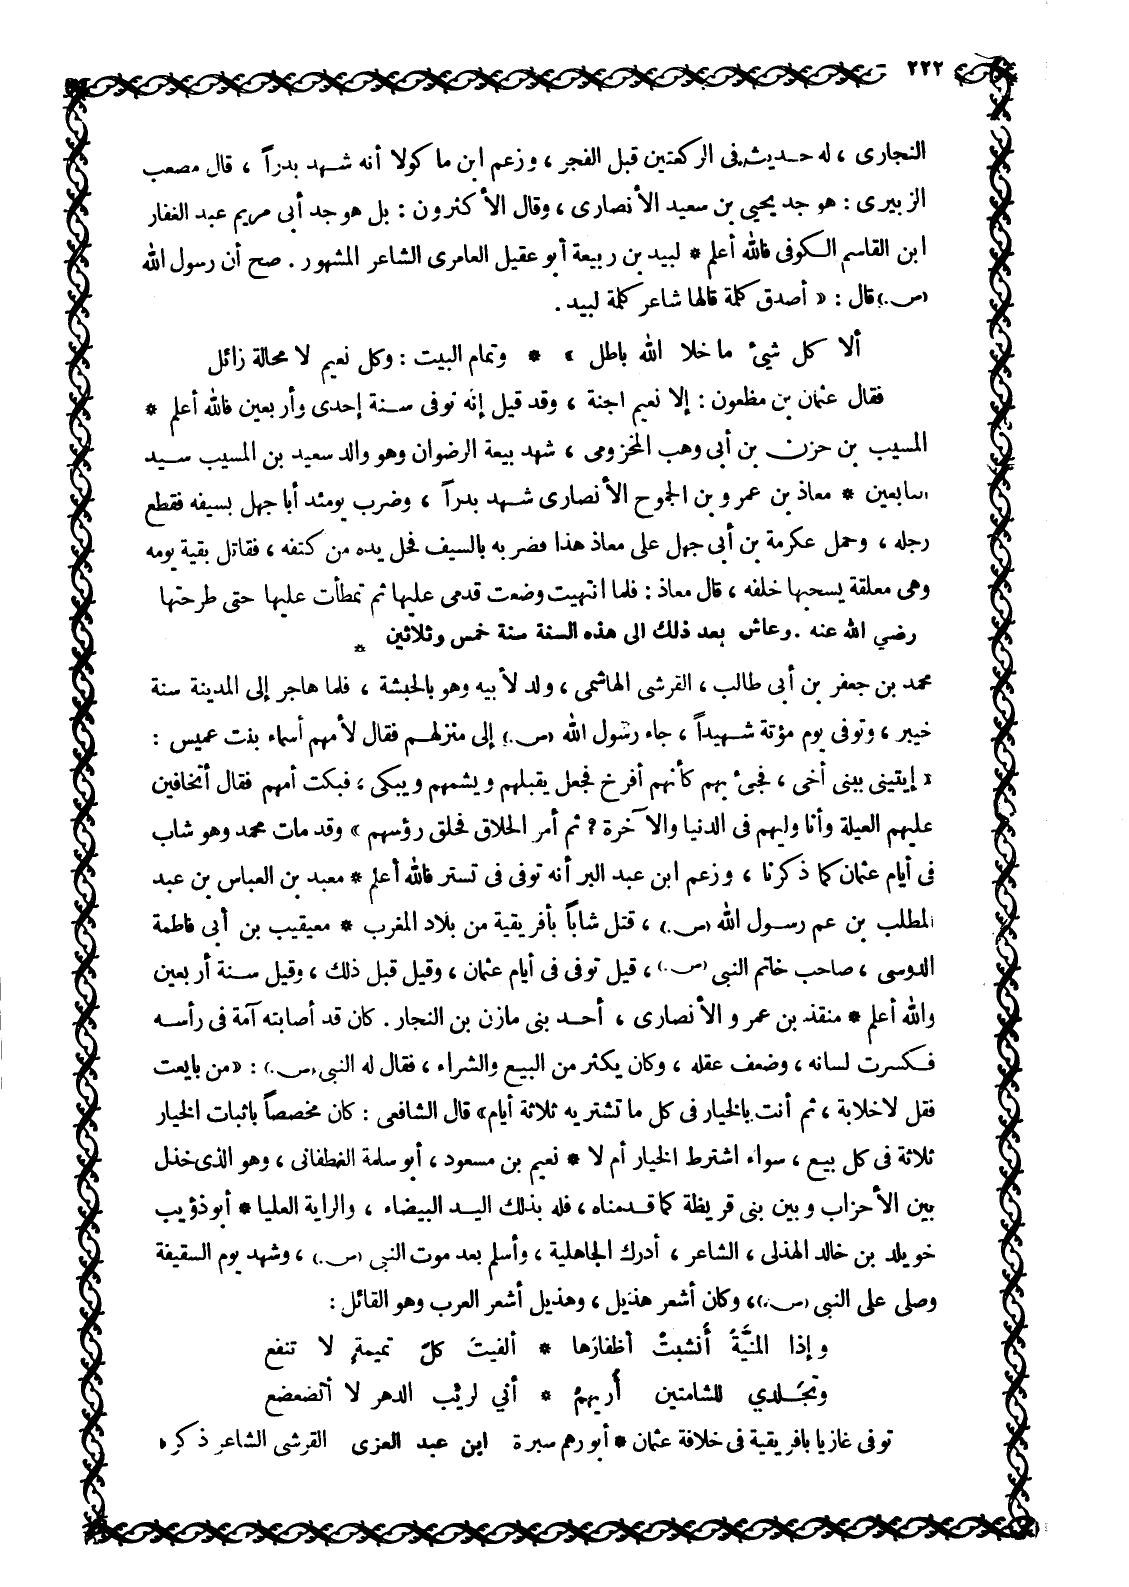 ٢٢٢
النجارى ، له حديث فى الركعتين قبل الفجر ، وزعم ابن ما كولا أنه شهد بدراً ، قال مصعب
الزبيرى : هو جد يحيى بن سعيد الأنصارى ، وقال الأكثرون : بل هو جد أبى مريم عبد الغفار
ابن القاسم الكوفى فالله أعلم * لبيد بن ربيعة أبو عقيل العامرى الشاعر المشهور . صح أن رسول الله
(ص.) قال : « أصدق كلمة قالها شاعر كلمة لبيد .
ألا كل شئ ما خلا الله باطل » * وتمام البيت : وكل نعيم لا محالة زائل
فقال عثمان بن مظعون : إلا نعيم اجنة ، وقد قيل إنه توفى سنة إحدى وأربعين فالله أعلم *
المسيب بن حزن بن أبى وهب المخزومى ، شهد بيعة الرضوان وهو والد سعيد بن المسيب سيد
التابعين * معاذ بن عمرو بن الجموح الأنصارى شهد بدراً ، وضرب يومئذ أبا جهل بسيفه فقطع
رجله ، وحمل عكرمة بن أبى جهل على معاذ هذا فضربه بالسيف فحل يده من كتفه ، فقاتل بقية يومه
وهى معلقة يسحبها خلفه ، قال معاذ : فلما انتهيت وضعت قدمى عليها ثم تمطأت عليها حتى طرحتها
رضي الله عنه . وعاش بعد ذلك الى هذه السنة سنة خمس وثلاثين *
محمد بن جعفر بن أبى طالب ، القرشى الهاشمى ، ولد لأبيه وهو بالحبشة ، فلما هاجر إلى المدينة سنة
خيبر ، وتوفى يوم مؤتة شهيداً ، جاء رسول الله (ص.) إلى منزلهم فقال لأمهم أسماء بنت عميس :
« إيقينى ببنى أخى ، فجئ بهم كأنهم أفرخ فجعل يقبلهم ويشمهم ويبكى ، فبكت أمهم فقال أتخافين
عليهم العيلة وأنا وليهم فى الدنيا والآخرة ؟ ثم أمر الحلاق فحلق رؤسهم » وقد مات محمد وهو شاب
فى أيام عثمان كما ذكرنا ، وزعم ابن عبد البر أنه توفى فى تستر فالله أعلم * معبد بن العباس بن عبد
المطلب بن عم رسول الله (ص.) ، قتل شاباً بأفريقية من بلاد المغرب * معيقيب بن أبى فاطمة
الدوسى ، صاحب خاتم النبى (ص.) ، قيل توفى فى أيام عثمان ، وقيل قبل ذلك ، وقيل سنة أربعين
والله أعلم * منقذ بن عمرو الأنصارى ، أحد بنى مازن بن النجار . كان قد أصابته آمة فى رأسه
فكسرت لسانه ، وضعف عقله ، وكان يكثر من البيع والشراء ، فقال له النبى (ص.) : « من بايعت
فقل لا خلابة ، ثم أنت بالخيار فى كل ما تشتريه ثلاثة أيام » قال الشافعى : كان مخصصاً باثبات الخيار
ثلاثة فى كل بيع ، سواء اشترط الخيار أم لا * نعيم بن مسعود ، أبو سلمة الغطفانى ، وهو الذى خذل
بين الأحزاب وبين بنى قريظة كما قدمناه ، فله بذلك اليد البيضاء ، والراية العليا * أبو ذؤيب
خويلد بن خالد الهذلى ، الشاعر ، أدرك الجاهلية ، وأسلم بعد موت النبى (ص.) ، وشهد يوم السقيفة
وصلى على النبى (ص.) ، وكان أشعر هذيل ، وهذيل أشعر العرب وهو القائل :
وإذا المنيَّةُ أَنشبتْ أظفارَها * ألفيتَ كلّ تميمةٍ لا تنفع
وتجلّدي للشامتين أُريهمُ * أني لريْب الدهر لا أتضعضع
توفى غازيا بافريقية فى خلافة عثمان * أبو رهم سبرة ابن عبد العزى القرشى الشاعر ذكره